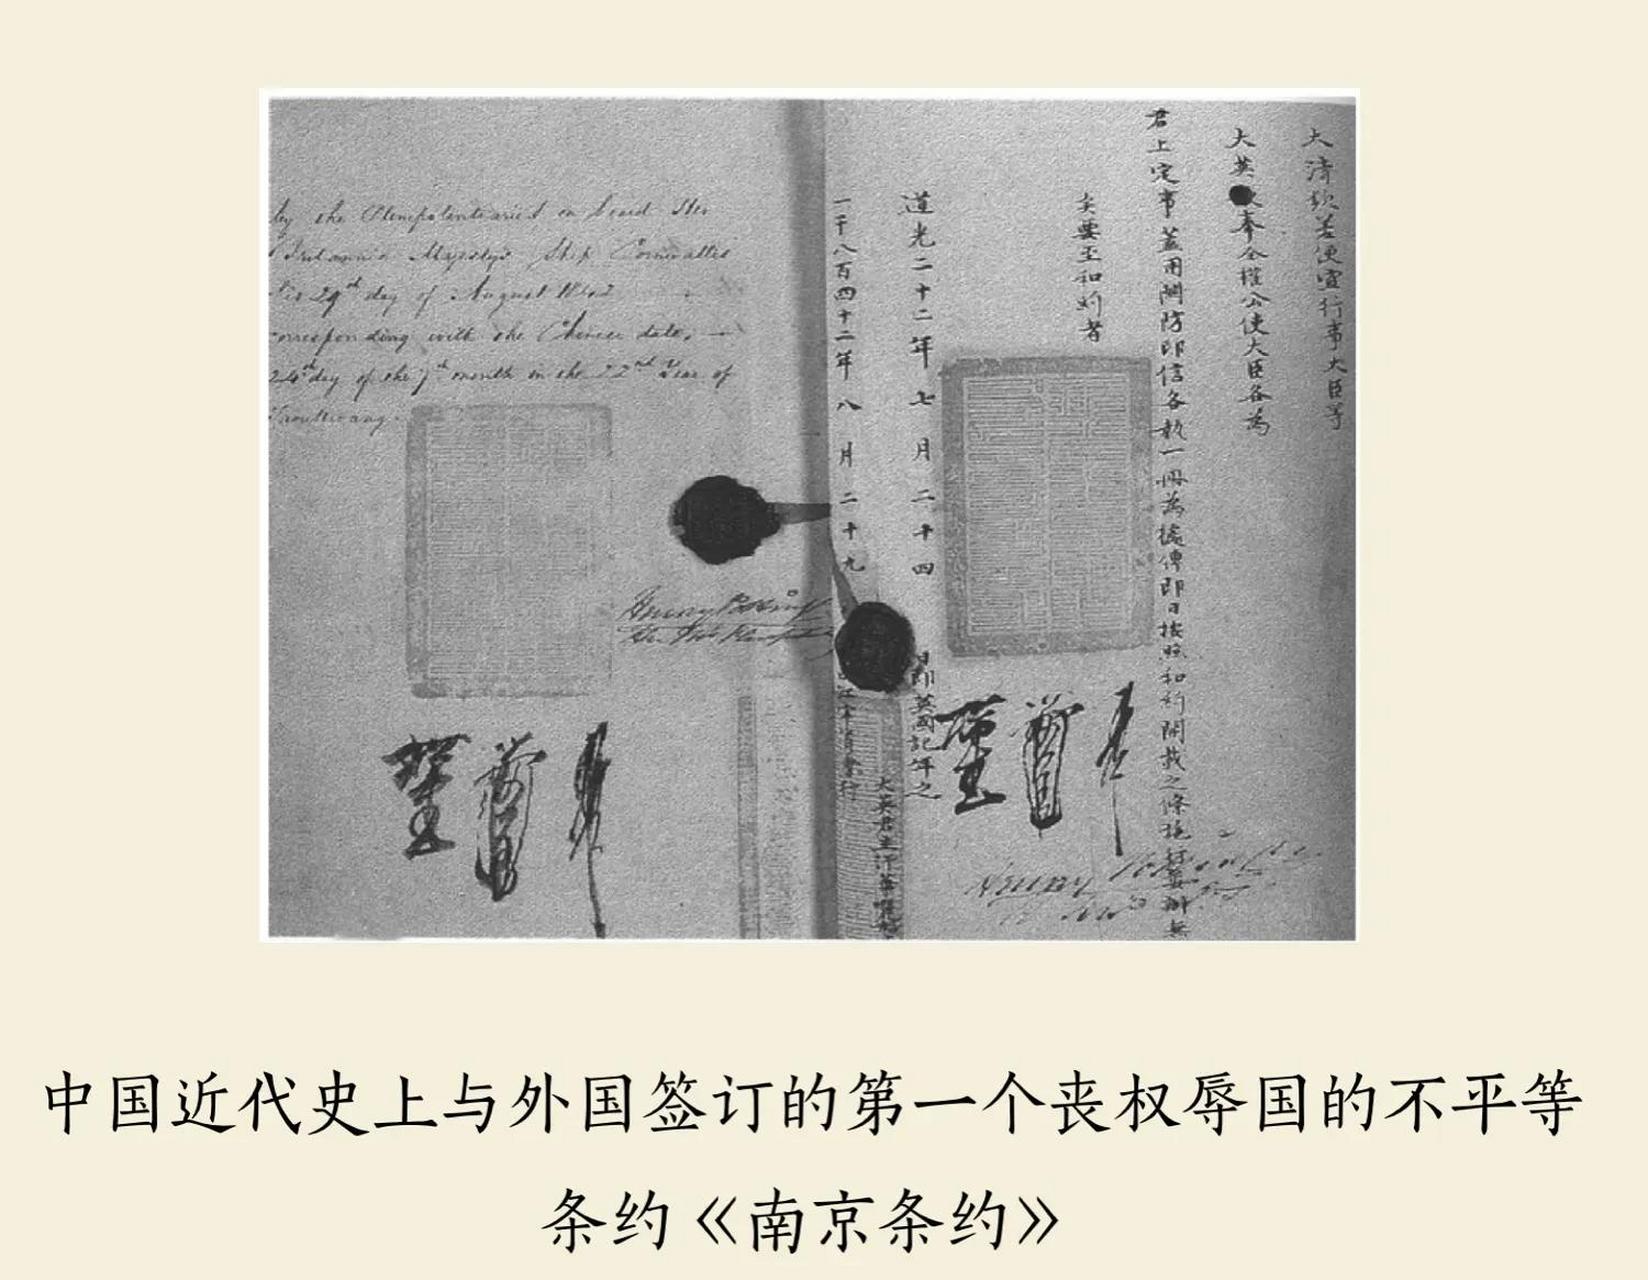 by the Plenipotentiaries on board Her
Britannic Majesty's Ship Cornwallis
this 29th day of August 1842
corresponding with the Chinese date,
24th day of the 7th month in the 22nd Year of
Taoukwang.
大清欽差便宜行事大臣等
大英 奉全權公使大臣各為
君上定事蓋用關防印信各執一冊為據俾即日按照和約開載之條施行妥辦無
矣要至和約者
道光二十二年七月二十四日即英國記年之
一千八百四十二年八月二十九
大英君主汗華
Henry
Henry
中国近代史上与外国签订的第一个丧权辱国的不平等
条约《南京条约》